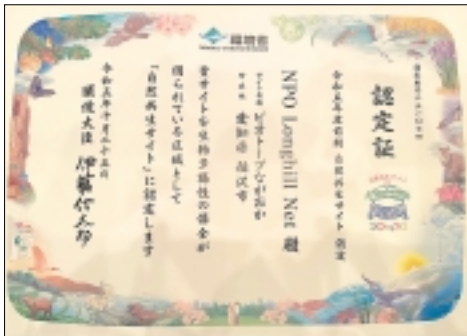 環境省
認定証
令和五年度前期 自然共生サイト 認定
NPO Longhill Net 殿
サイト名称 ビオトープながおか
愛知県 稲沢市
貴サイトを生物多様性の保全が
図られている区域として
「自然共生サイト」に認定します
令和五年十月二十五日
環境大臣 伊藤信太郎